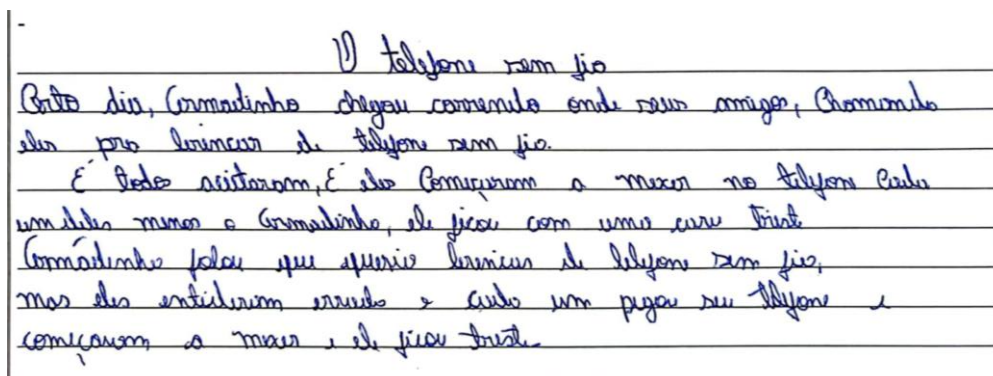 O telefone sem fio
Certo dia, Armadinho chegou correndo onde seus amigos, Chamando
eles pra brincar de telefone sem fio.
É todos aceitaram, É eles Começaram a mexer no telefone Cada
um deles menos o Armadinho, ele ficou com uma cara trist
Armadinho falou que queria brincar de telefone sem fio,
mas eles entiderum errado e cada um pegou seu telefone e
começaram a mexer e ele ficou triste